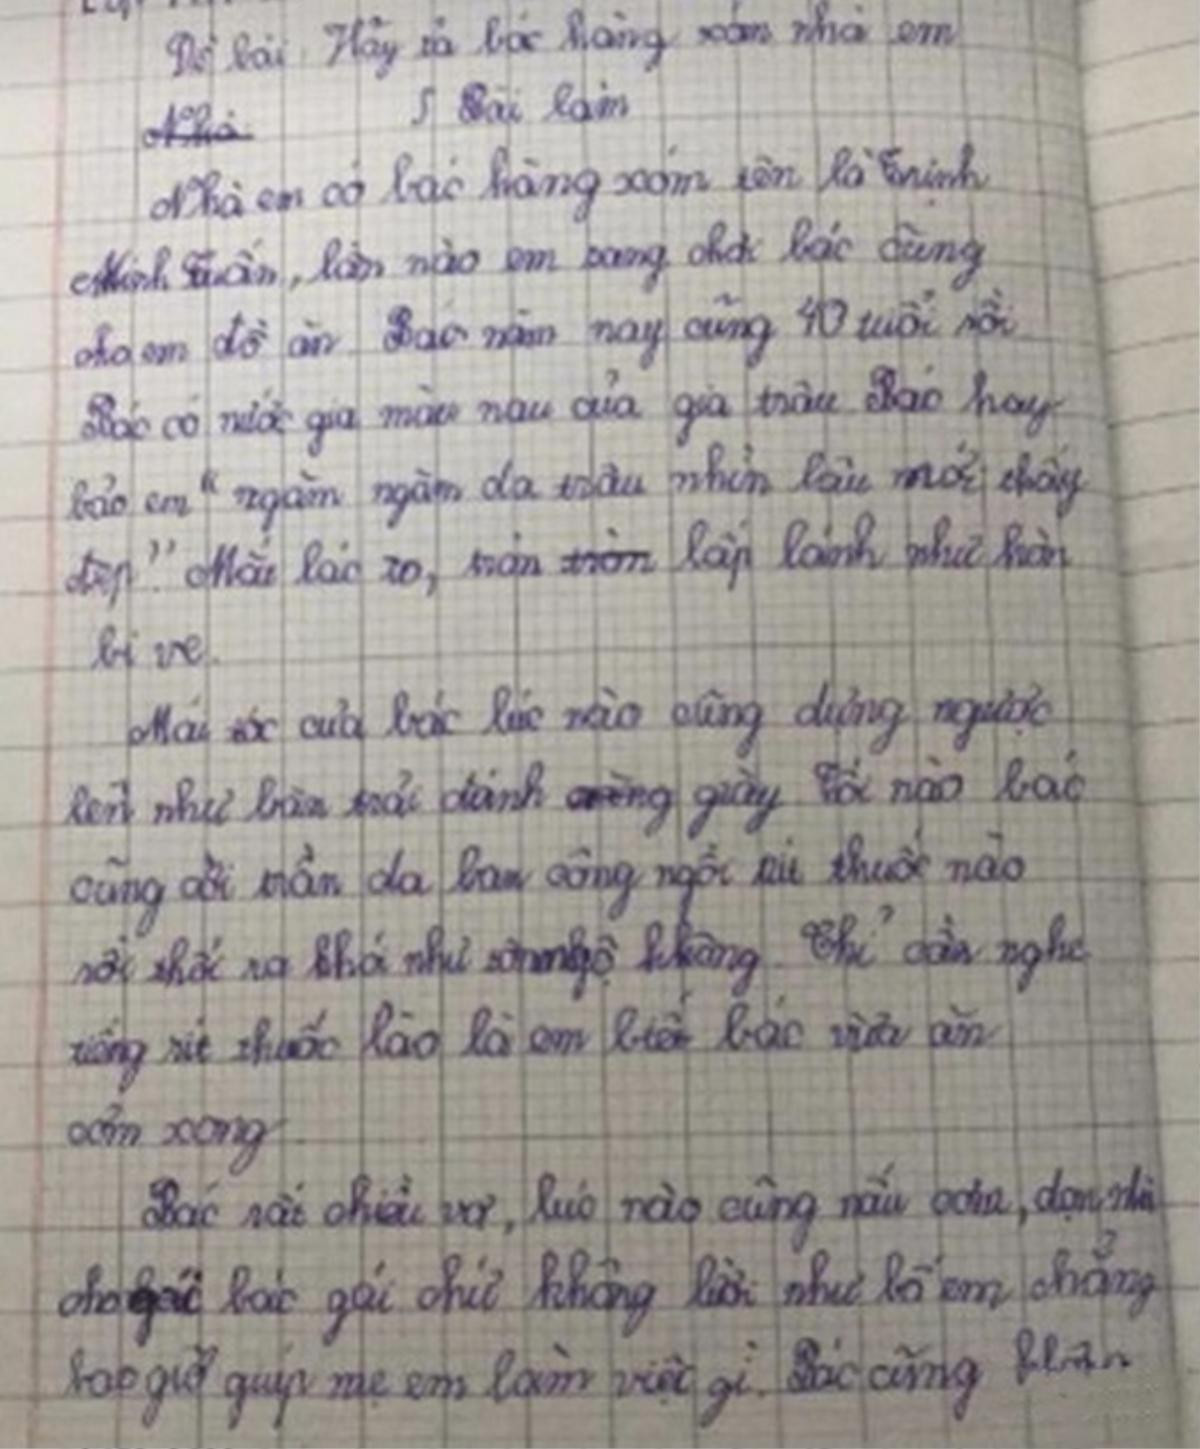 Đề bài: Hãy tả bác hàng xóm nhà em
Bài làm
Nhà em có bác hàng xóm tên là Trịnh
Minh Tuấn, lần nào em sang chơi bác cũng
cho em đồ ăn Bác năm nay cũng 40 tuổi rồi
Bác có nước gia màu nau của gia trâu Bác hay
bảo em "ngăm ngăm da trâu nhìn lâu mới thấy
đẹp". Mắt bác to, tròn lấp lánh như hòn
bi ve.
Mái tóc của bác lúc nào cũng dựng ngược
lên như bàn trải đánh giày Tối nào bác
cũng cởi trần da ban công ngồi rít thuốc nào
rồi thổi ra khói như Tôn Ngộ Không. Chỉ cần nghe
tiếng rít thuốc lào là em biết bác vừa ăn
cơm xong
Bác rất chiều vợ, lúc nào cũng nấu cơm, dọn nhà
cho bác gái chứ không lười như bố em chẳng
bao giờ giúp mẹ em làm việc gì. Bác cũng